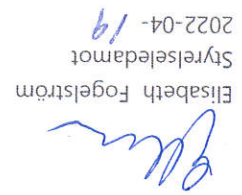 Elisabeth Fogelström
Styrelseledamot
2022-04-19